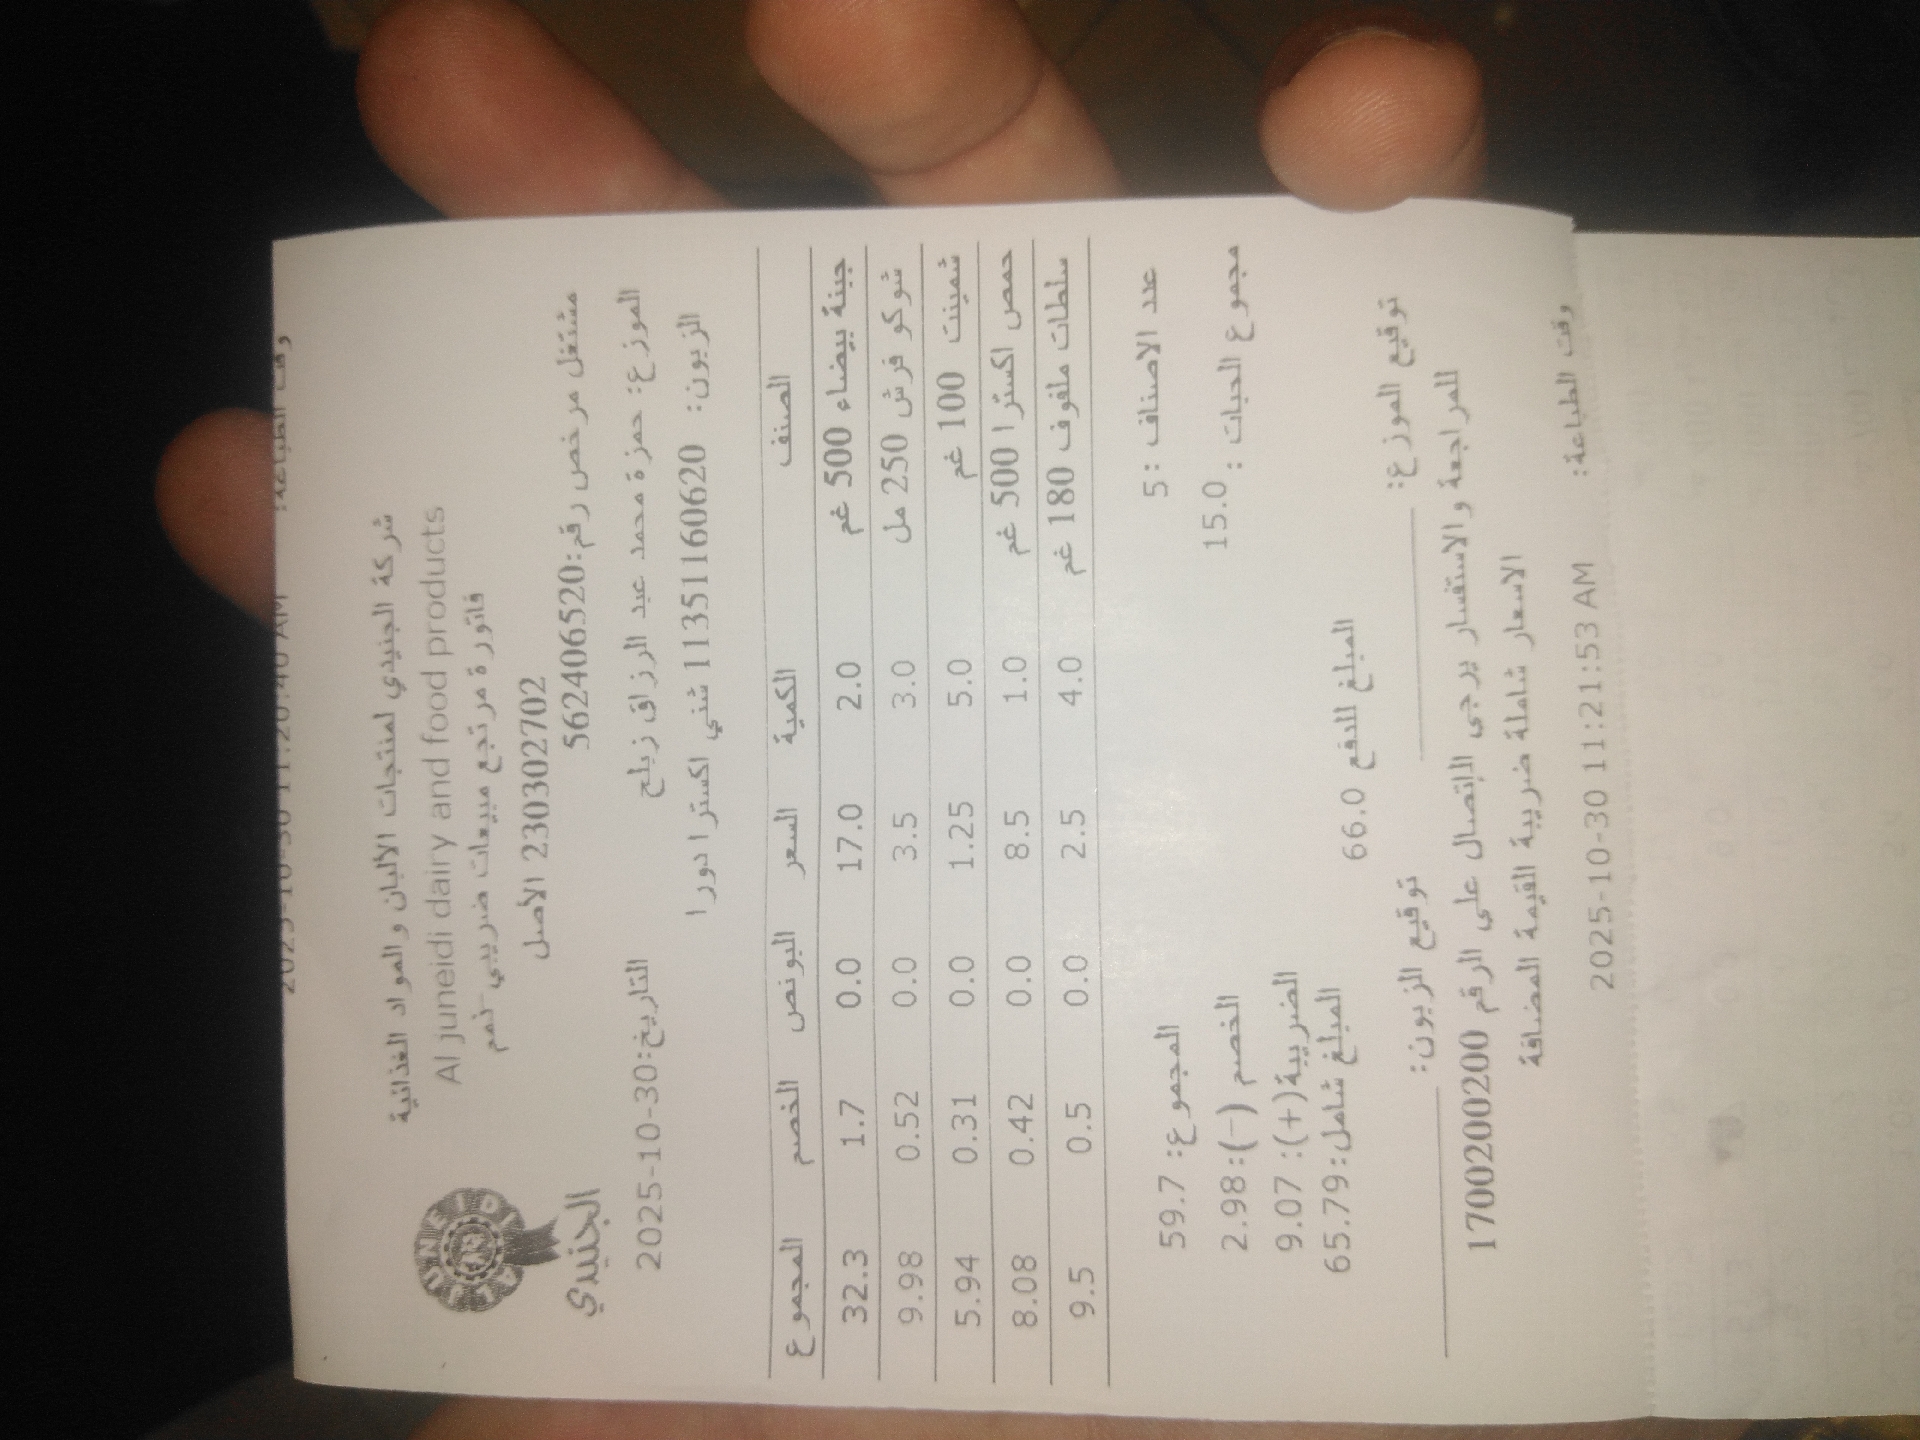 شركة الجنيدي لمنتجات الالبان والمواد الغذائية
Al juneidi dairy and food products
فاتورة مرتجع مبيعات ضريبي-نمم
230302702 الأصل
مشتغل مرخص رقم:562406520
JUNEIDI
الجنيدي
الموزع: حمزة محمد عبد الرزاق زبلح
التاريخ:30-10-2025
الزبون: 11351160620 شني اكسترا دورا
الصنف الكمية السعر البونص الخصم المجموع
جبنة بيضاء 500 غم 2.0 17.0 0.0 1.7 32.3
شوكو فرش 250 مل 3.0 3.5 0.0 0.52 9.98
شمينت 100 غم 5.0 1.25 0.0 0.31 5.94
حمص اكسترا 500 غم 1.0 8.5 0.0 0.42 8.08
سلطات ملفوف 180 غم 4.0 2.5 0.0 0.5 9.5
عدد الاصناف :5
المجموع: 59.7
مجموع الحبات : 15.0
الخصم (-): 2.98
الضريبة(+): 9.07
المبلغ شامل: 65.79
المبلغ للدفع 66.0
توقيع الموزع: توقيع الزبون:
للمراجعة والاستفسار يرجى الإتصال على الرقم 1700200200
الاسعار شاملة ضريبة القيمة المضافة
وقت الطباعة: 2025-10-30 11:21:53 AM